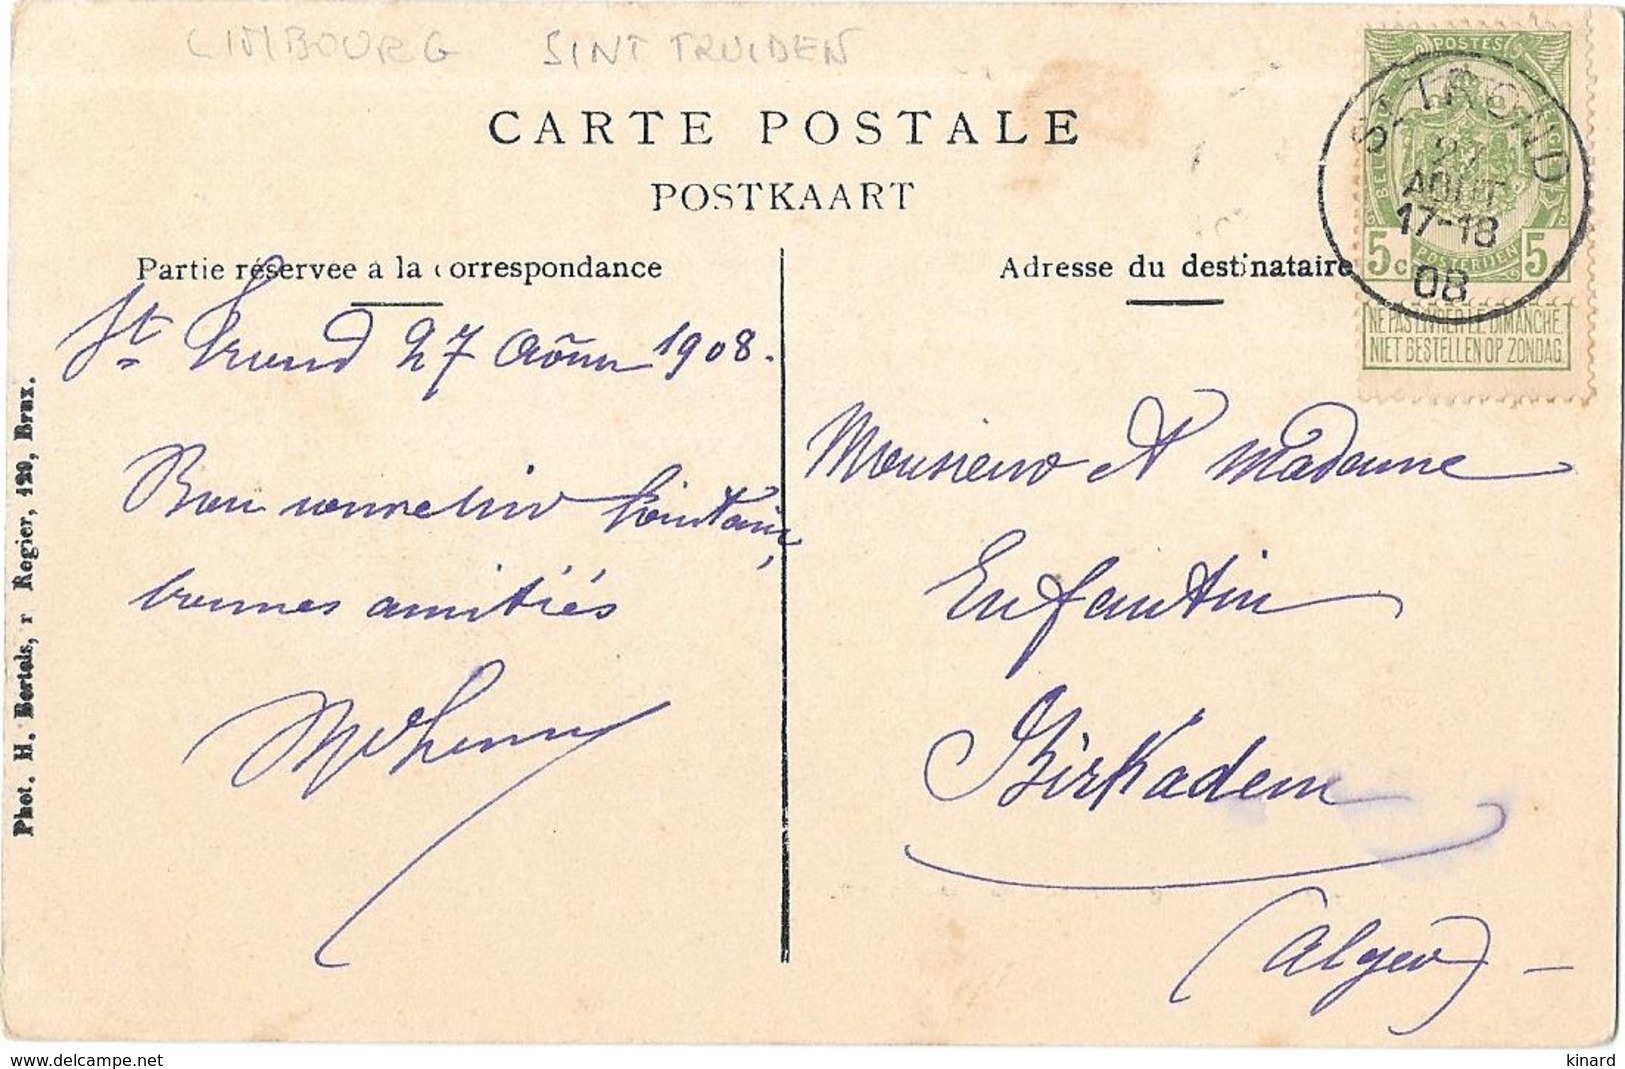 LIMBOURG SINT TRUIDEN
CARTE POSTALE
POSTKAART
Partie réservee à la correspondance
Adresse du destinataire
POSTES
BELGIQUE
BELGIE
5c 5c
POSTERIJEN
NE PAS LIVRER LE DIMANCHE.
NIET BESTELLEN OP ZONDAG.
ST-TROND
27
AOUT
17-18
08
St Trond 27 Août 1908.
Bon souvenir lointain,
bonnes amitiés
Monsieur et Madame
Enfantin
Birkadem
(Alger)
Phot. H. Bertels, r Rogier, 129, Brux.
www.delcampe.net
kinard